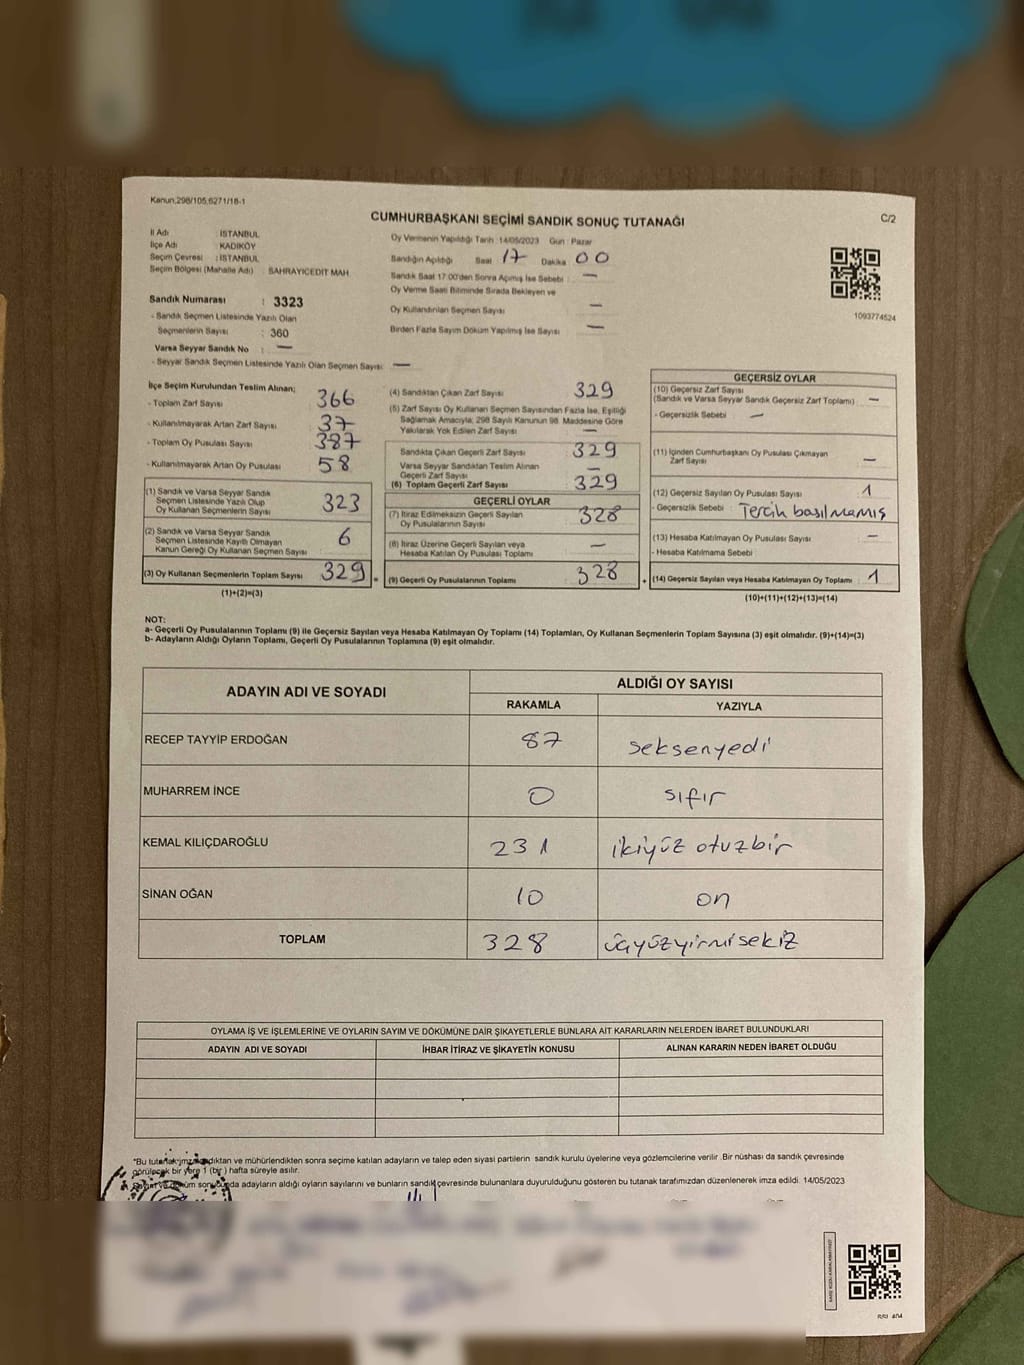 Kanun,298/105,6271/18-1
CUMHURBAŞKANI SEÇİMİ SANDIK SONUÇ TUTANAĞI
C/2
İl Adı : İSTANBUL
İlçe Adı : KADIKÖY
Seçim Çevresi : İSTANBUL
Seçim Bölgesi (Mahalle Adı) SAHRAYICEDİT MAH
Sandık Numarası : 3323
- Sandık Seçmen Listesinde Yazılı Olan
Seçmenlerin Sayısı : 360
Varsa Seyyar Sandık No : —
- Seyyar Sandık Seçmen Listesinde Yazılı Olan Seçmen Sayısı: —
Oy Vermenin Yapıldığı Tarih 14/05/2023 Gün : Pazar
Sandığın Açıldığı Saat : 17 Dakika : 00
Sandık Saat 17:00'den Sonra Açımış İse Sebebi : —
Oy Verme Saati Bitiminde Sırada Bekleyen ve
Oy Kullandırılan Seçmen Sayısı —
Birden Fazla Sayım Döküm Yapılmış İse Sayısı : —
1093774524
İlçe Seçim Kurulundan Teslim Alınan;
- Toplam Zarf Sayısı 366
- Kullanılmayarak Artan Zarf Sayısı : 37
- Toplam Oy Pusulası Sayısı 387
- Kullanılmayarak Artan Oy Pusulası : 58
(1) Sandık ve Varsa Seyyar Sandık
Seçmen Listesinde Yazılı Olup
Oy Kullanan Seçmenlerin Sayısı 323
(2) Sandık ve Varsa Seyyar Sandık
Seçmen Listesinde Kayıtlı Olmayan
Kanun Gereği Oy Kullanan Seçmen Sayısı 6
(3) Oy Kullanan Seçmenlerin Toplam Sayısı 329 =
(1)+(2)=(3)
(4) Sandıktan Çıkan Zarf Sayısı 329
(5) Zarf Sayısı Oy Kullanan Seçmen Sayısından Fazla İse, Eşitliği
Sağlamak Amacıyla; 298 Sayılı Kanunun 98. Maddesine Göre
Yakılarak Yok Edilen Zarf Sayısı —
Sandıkta Çıkan Geçerli Zarf Sayısı 329
Varsa Seyyar Sandıktan Teslim Alınan
Geçerli Zarf Sayısı —
(6) Toplam Geçerli Zarf Sayısı 329
GEÇERLİ OYLAR
(7) İtiraz Edilmeksizin Geçerli Sayılan
Oy Pusulalarının Sayısı 328
(8) İtiraz Üzerine Geçerli Sayılan veya
Hesaba Katılan Oy Pusulası Toplamı —
(9) Geçerli Oy Pusulalarının Toplamı 328 +
GEÇERSİZ OYLAR
(10) Geçersiz Zarf Sayısı
(Sandık ve Varsa Seyyar Sandık Geçersiz Zarf Toplamı) —
- Geçersizlik Sebebi : —
(11) İçinden Cumhurbaşkanı Oy Pusulası Çıkmayan
Zarf Sayısı —
(12) Geçersiz Sayılan Oy Pusulası Sayısı 1
- Geçersizlik Sebebi : Tercih basılmamış
(13) Hesaba Katılmayan Oy Pusulası Sayısı —
- Hesaba Katılmama Sebebi :
(14) Geçersiz Sayılan veya Hesaba Katılmayan Oy Toplamı 1
(10)+(11)+(12)+(13)=(14)
NOT:
a- Geçerli Oy Pusulalarının Toplamı (9) ile Geçersiz Sayılan veya Hesaba Katılmayan Oy Toplamı (14) Toplamları, Oy Kullanan Seçmenlerin Toplam Sayısına (3) eşit olmalıdır. (9)+(14)=(3)
b- Adayların Aldığı Oyların Toplamı, Geçerli Oy Pusulalarının Toplamına (9) eşit olmalıdır.
ADAYIN ADI VE SOYADI
ALDIĞI OY SAYISI
RAKAMLA YAZIYLA
RECEP TAYYİP ERDOĞAN 87 seksenyedi
MUHARREM İNCE 0 sıfır
KEMAL KILIÇDAROĞLU 231 ikiyüz otuzbir
SİNAN OĞAN 10 on
TOPLAM 328 üçyüzyirmisekiz
OYLAMA İŞ VE İŞLEMLERİNE VE OYLARIN SAYIM VE DÖKÜMÜNE DAİR ŞİKAYETLERLE BUNLARA AİT KARARLARIN NELERDEN İBARET BULUNDUKLARI
ADAYIN ADI VE SOYADI İHBAR İTİRAZ VE ŞİKAYETİN KONUSU ALINAN KARARIN NEDEN İBARET OLDUĞU
*Bu tutanak imzalandıktan ve mühürlendikten sonra seçime katılan adayların ve talep eden siyasi partilerin sandık kurulu üyelerine veya gözlemcilerine verilir .Bir nüshası da sandık çevresinde
görülecek bir yere 1 (bir ) hafta süreyle asılır.
sonucunda adayların aldığı oyların sayılarını ve bunların sandık çevresinde bulunanlara duyurulduğunu gösteren bu tutanak tarafımızdan düzenlenerek imza edildi. 14/05/2023